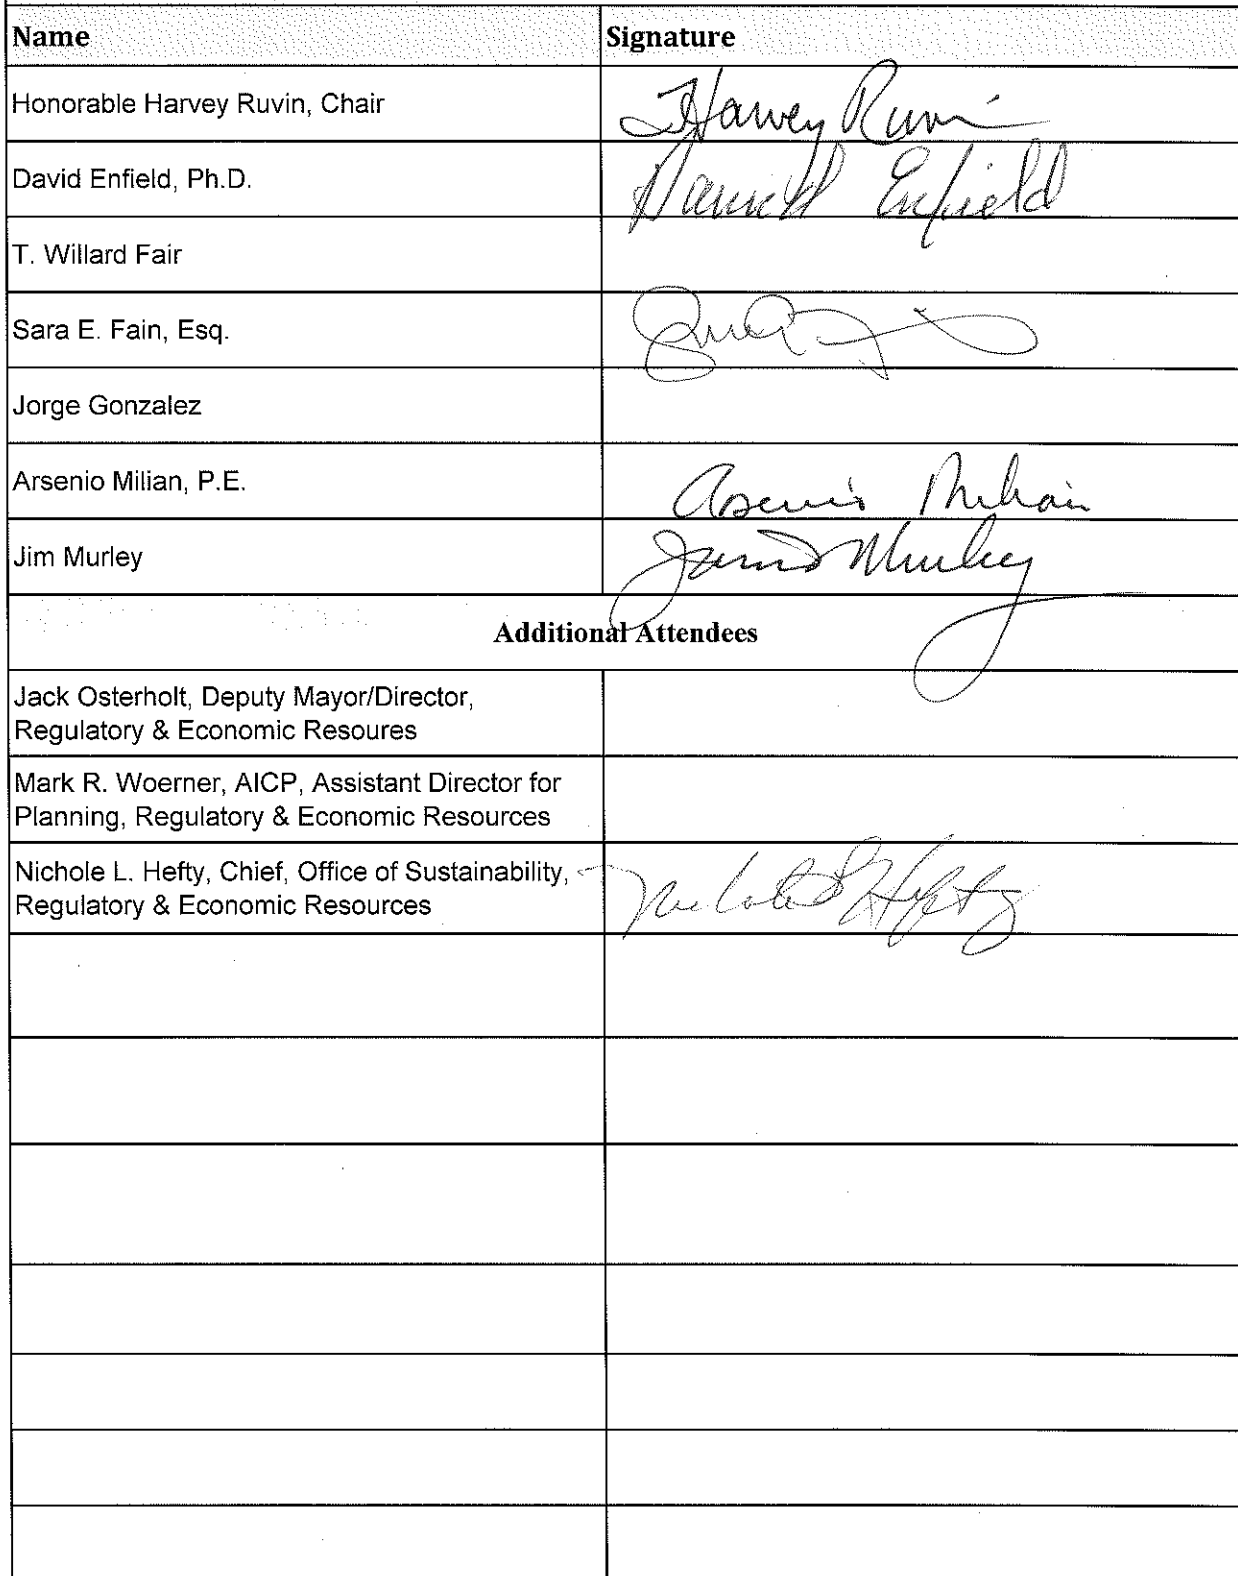 Name Signature
Honorable Harvey Ruvin, Chair Harvey Ruvin
David Enfield, Ph.D. David Enfield
T. Willard Fair
Sara E. Fain, Esq.
Jorge Gonzalez
Arsenio Milian, P.E. Arsenio Milian
Jim Murley James Murley
Additional Attendees
Jack Osterholt, Deputy Mayor/Director,
Regulatory & Economic Resoures
Mark R. Woerner, AICP, Assistant Director for
Planning, Regulatory & Economic Resources
Nichole L. Hefty, Chief, Office of Sustainability,
Regulatory & Economic Resources Nichole L Hefty